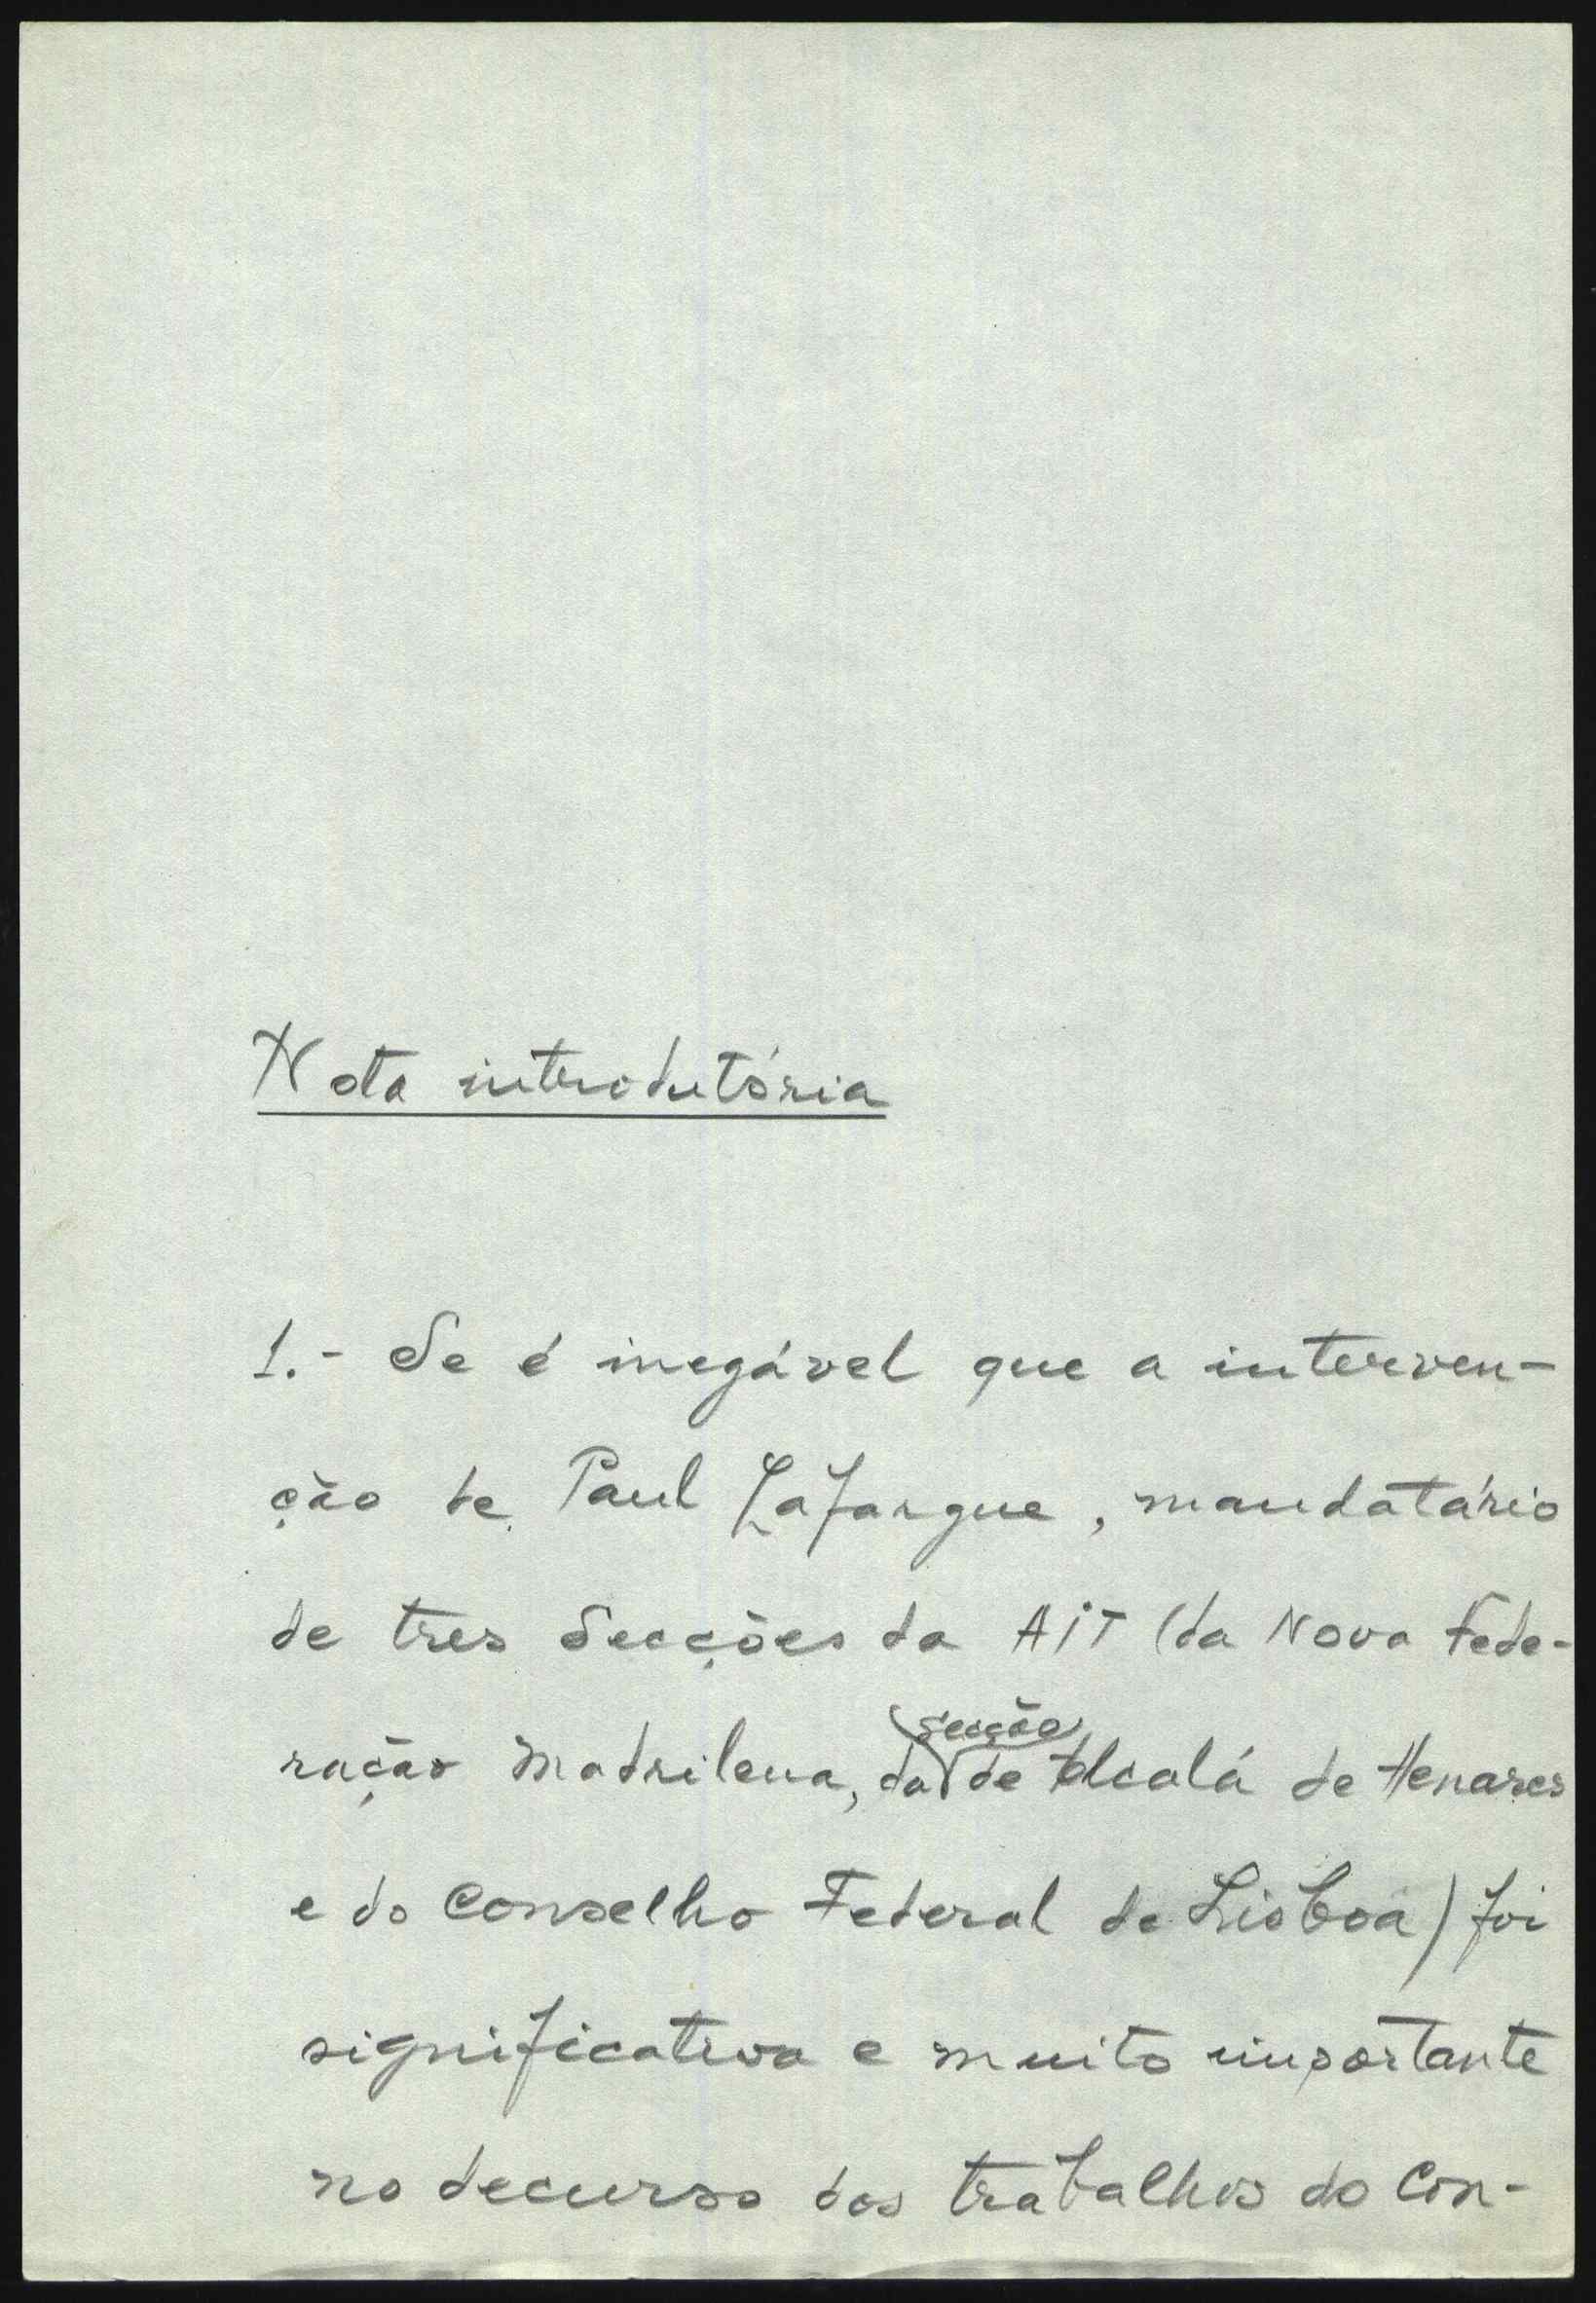 Nota introdutória
1.- Se é inegável que a interven-
ção de Paul Lafargue, mandatário
de tres Secções da AIT (da Nova Fede-
ração Madrilena, da secção de Alcalá de Henares
e do Conselho Federal de Lisboa) foi
significativa e muito importante
no decurso dos trabalhos do Con-